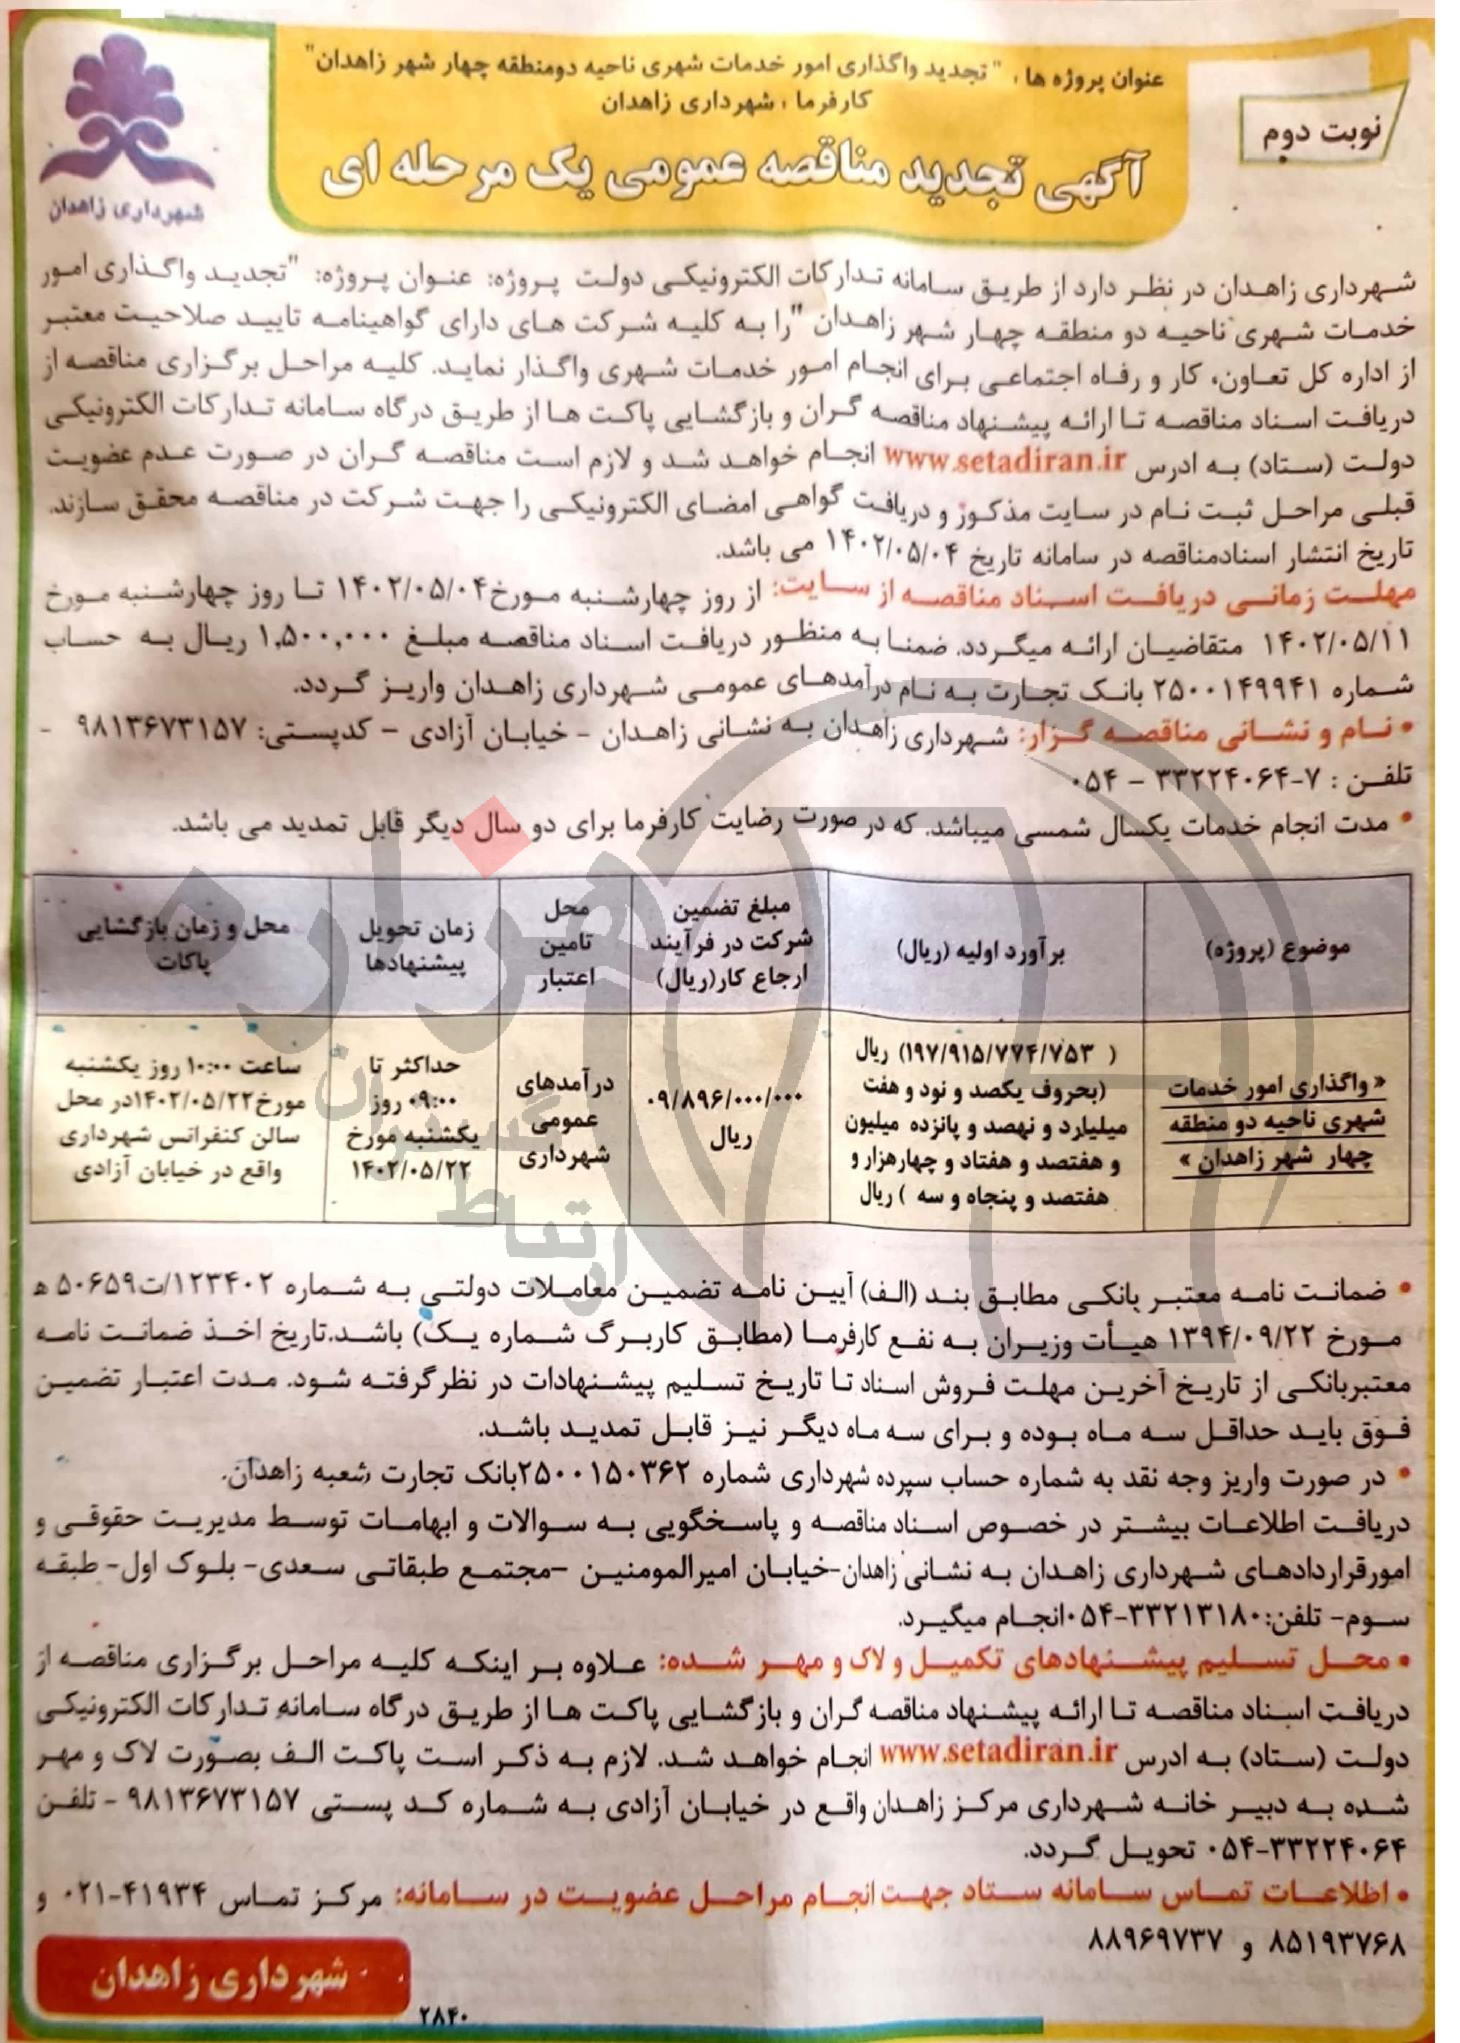 عنوان پروژه ها : "تجدید واگذاری امور خدمات شهری ناحیه دومنطقه چهار شهر زاهدان"
کارفرما : شهرداری زاهدان
نوبت دوم
آگهی تجدید مناقصه عمومی یک مرحله ای
شهرداری زاهدان
شهرداری زاهدان در نظر دارد از طریق سامانه تدارکات الکترونیکی دولت پروژه: عنوان پروژه: "تجدید واگذاری امور
خدمات شهری ناحیه دو منطقه چهار شهر زاهدان "را به کلیه شرکت های دارای گواهینامه تایید صلاحیت معتبر
از اداره کل تعاون، کار و رفاه اجتماعی برای انجام امور خدمات شهری واگذار نماید. کلیه مراحل برگزاری مناقصه از
دریافت اسناد مناقصه تا ارائه پیشنهاد مناقصه گران و بازگشایی پاکت ها از طریق درگاه سامانه تدارکات الکترونیکی
دولت (ستاد) به ادرس www.setadiran.ir انجام خواهد شد و لازم است مناقصه گران در صورت عدم عضویت
قبلی مراحل ثبت نام در سایت مذکور و دریافت گواهی امضای الکترونیکی را جهت شرکت در مناقصه محقق سازند.
تاریخ انتشار اسنادمناقصه در سامانه تاریخ ۱۴۰۲/۰۵/۰۴ می باشد.
مهلت زمانی دریافت اسناد مناقصه از سایت: از روز چهارشنبه مورخ۱۴۰۲/۰۵/۰۴ تا روز چهارشنبه مورخ
۱۴۰۲/۰۵/۱۱ متقاضیان ارائه میگردد. ضمنا به منظور دریافت اسناد مناقصه مبلغ ۱,۵۰۰,۰۰۰ ریال به حساب
شماره ۲۵۰۰۱۴۹۹۴۱ بانک تجارت به نام درآمدهای عمومی شهرداری زاهدان واریز گردد.
• نام و نشانی مناقصه گزار: شهرداری زاهدان به نشانی زاهدان - خیابان آزادی – کدپستی: ۹۸۱۳۶۷۳۱۵۷ -
تلفن : ۷-۳۳۲۲۴۰۶۴ – ۰۵۴
• مدت انجام خدمات یکسال شمسی میباشد. که در صورت رضایت کارفرما برای دو سال دیگر قابل تمدید می باشد.
موضوع (پروژه)
برآورد اولیه (ریال)
مبلغ تضمین
شرکت در فرآیند
ارجاع کار(ریال)
محل
تامین
اعتبار
زمان تحویل
پیشنهادها
محل و زمان بازگشایی
پاکات
« واگذاری امور خدمات
شهری ناحیه دو منطقه
چهار شهر زاهدان »
( ۱۹۷/۹۱۵/۷۷۴/۷۵۳) ریال
(بحروف یکصد و نود و هفت
میلیارد و نهصد و پانزده میلیون
و هفتصد و هفتاد و چهارهزار و
هفتصد و پنجاه و سه ) ریال
۰۹/۸۹۶/۰۰۰/۰۰۰
ریال
درآمدهای
عمومی
شهرداری
حداکثر تا
۰۹:۰۰ روز
یکشنبه مورخ
۱۴۰۲/۰۵/۲۲
ساعت ۱۰:۰۰ روز یکشنبه
مورخ۱۴۰۲/۰۵/۲۲در محل
سالن کنفرانس شهرداری
واقع در خیابان آزادی
• ضمانت نامه معتبر بانکی مطابق بند (الف) آیین نامه تضمین معاملات دولتی به شماره ۱۲۳۴۰۲/ت۵۰۶۵۹ ه
مورخ ۱۳۹۴/۰۹/۲۲ هیأت وزیران به نفع کارفرما (مطابق کاربرگ شماره یک) باشد.تاریخ اخذ ضمانت نامه
معتبربانکی از تاریخ آخرین مهلت فروش اسناد تا تاریخ تسلیم پیشنهادات در نظرگرفته شود. مدت اعتبار تضمین
فوق باید حداقل سه ماه بوده و برای سه ماه دیگر نیز قابل تمدید باشد.
• در صورت واریز وجه نقد به شماره حساب سپرده شهرداری شماره ۲۵۰۰۱۵۰۳۶۲بانک تجارت شعبه زاهدان.
دریافت اطلاعات بیشتر در خصوص اسناد مناقصه و پاسخگویی به سوالات و ابهامات توسط مدیریت حقوقی و
امورقراردادهای شهرداری زاهدان به نشانی زاهدان-خیابان امیرالمومنین -مجتمع طبقاتی سعدی- بلوک اول- طبقه
سوم- تلفن:۳۳۲۱۳۱۸۰-۰۵۴انجام میگیرد.
• محل تسلیم پیشنهادهای تکمیل و لاک و مهر شده: علاوه بر اینکه کلیه مراحل برگزاری مناقصه از
دریافت اسناد مناقصه تا ارائه پیشنهاد مناقصه گران و بازگشایی پاکت ها از طریق درگاه سامانه تدارکات الکترونیکی
دولت (ستاد) به ادرس www.setadiran.ir انجام خواهد شد. لازم به ذکر است پاکت الف بصورت لاک و مهر
شده به دبیر خانه شهرداری مرکز زاهدان واقع در خیابان آزادی به شماره کد پستی ۹۸۱۳۶۷۳۱۵۷ - تلفن
۳۳۲۲۴۰۶۴-۰۵۴ تحویل گردد.
• اطلاعات تماس سامانه ستاد جهت انجام مراحل عضویت در سامانه: مرکز تماس ۴۱۹۳۴-۰۲۱ و
۸۵۱۹۳۷۶۸ و ۸۸۹۶۹۷۳۷
شهرداری زاهدان
۲۸۴۰
هزاره
گستران
ارتباط